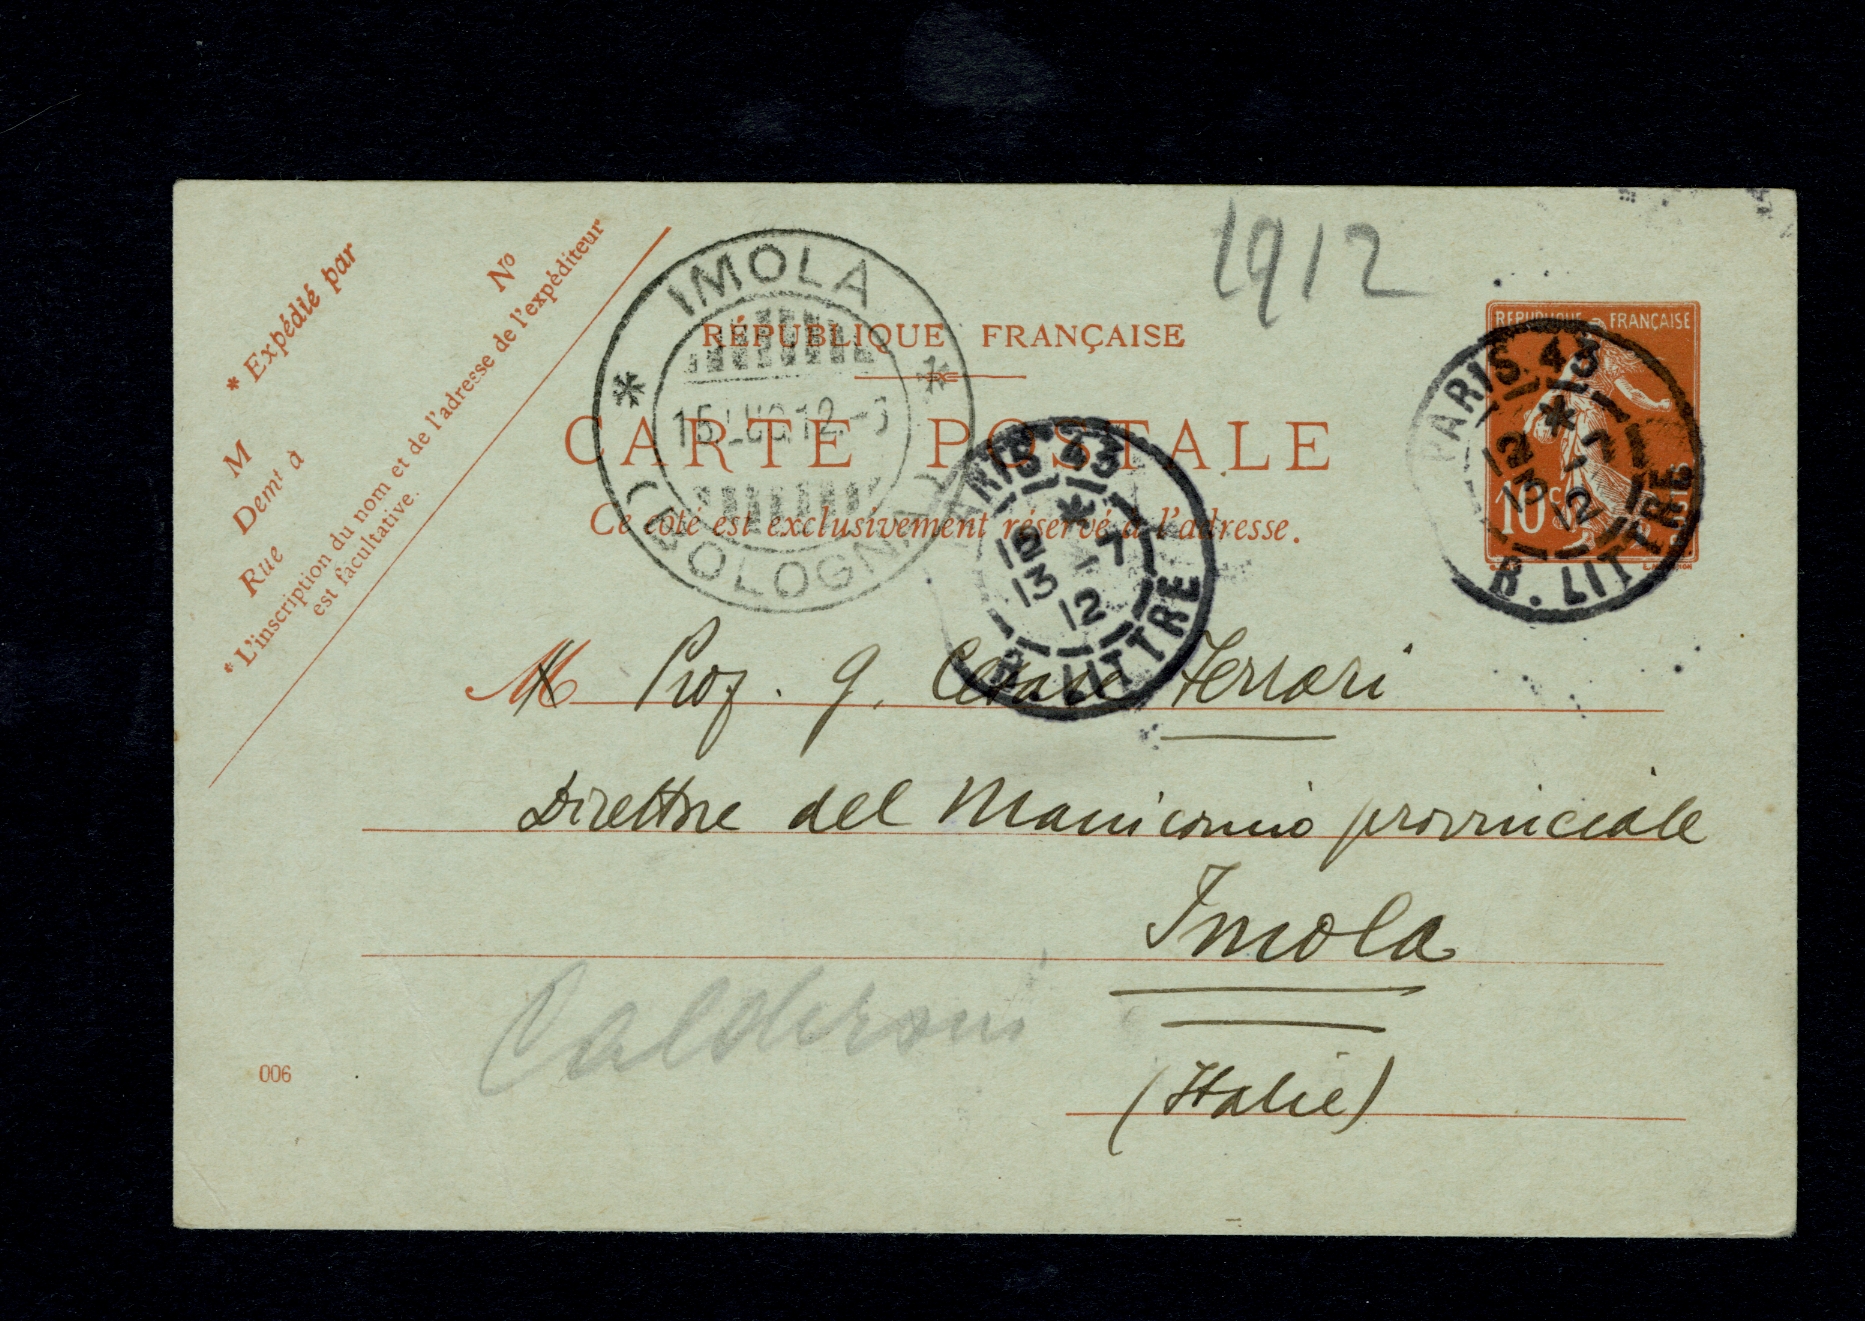 * Expédié par
M
Nº
Demt à
Rue
* L'inscription du nom et de l'adresse de l'expéditeur
est facultative.
IMOLA
(BOLOGNA)
15 LUG 12 - 6
1912
RÉPUBLIQUE FRANÇAISE
CARTE POSTALE
Ce côté est exclusivement réservé à l'adresse.
REPUBLIQUE FRANÇAISE
10 c
PARIS 43
13 -7
12
R. LITTRE
PARIS 43
13 -7
12
R. LITTRE
M Prof. G. Cesare Ferrari
Direttore del Manicomio provinciale
Imola
(Italie)
Calderoni
006